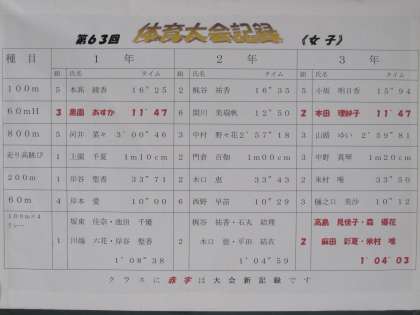 第63回 体育大会記録 《女子》
種目 1年 2年 3年
組 氏名 タイム 組 氏名 タイム 組 氏名 タイム
100m 5 本高 綾香 16"25 2 梶谷 祐香 16"35 5 小坂 明日香 15"94
60mH 3 黒園 あすか 11"47 6 関川 美瑞帆 12"50 2 本田 理紗子 11"47
800m 5 河井 菜々 3'00"46 3 中村 野々花 2'57"18 3 山路 ゆい 2'59"81
走り高跳び 1 上園 千夏 1m10cm 2 門倉 百伽 1m00cm 3 中野 真琴 1m20cm
200m 1 岸谷 聖香 33"71 2 水口 恵 33"43 2 米村 唯 33"50
60m 4 岸本 愛 10"00 6 西野 早苗 10"29 3 樋之口 美沙 10"12
100m×4リレー 1 坂東 佳奈・池田 千優 梶谷 祐香・石丸 結理 2 高島 見佳子・森 優花
川端 六花・岸谷 聖香 2 水口 恵・平田 結衣 麻田 彩夏・米村 唯
1'08"38 1'04"59 1'04"03
クラスに赤字は大会新記録です